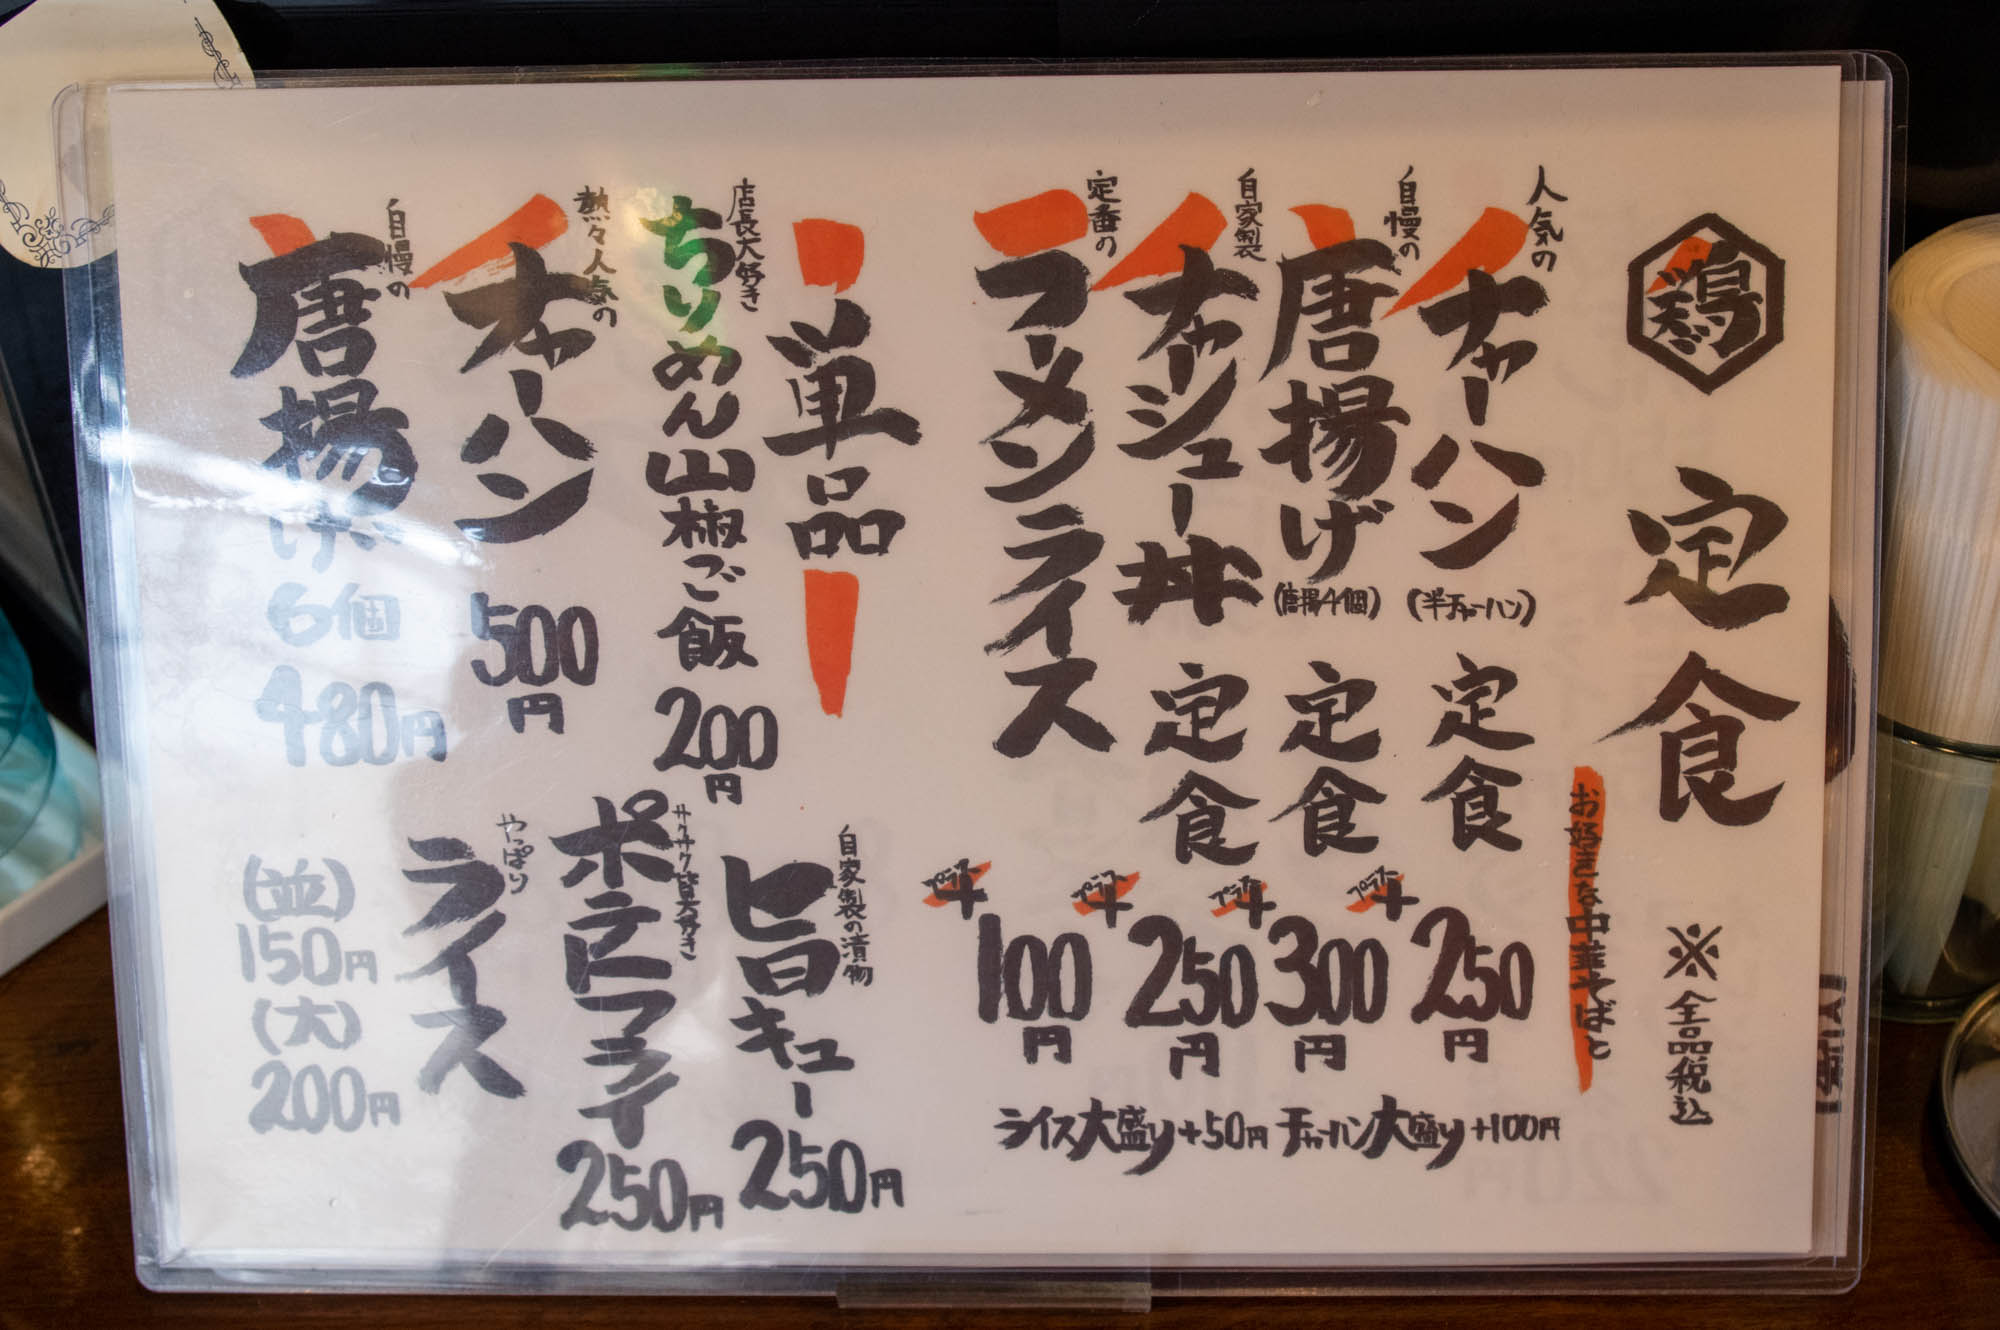 鶏
定食
※全品税込
お好きな中華そばと
人気の
チャーハン
(半チャーハン)
定食
プラス
+
250円
自慢の
唐揚げ
(唐揚4個)
定食
プラス
+
300円
自家製
チャーシュー丼
定食
プラス
+
250円
定番の
ラーメンライス
プラス
+
100円
ライス大盛り+50円 チャーハン大盛り+100円
単品
店長大好き
ちりめん山椒ご飯
200円
熱々人気の
チャーハン
500円
自慢の
唐揚げ
6個
480円
自家製の漬物
旨キュー
250円
サクサク皆大好き
ポテトフライ
250円
やっぱり
ライス
(並)
150円
(大)
200円